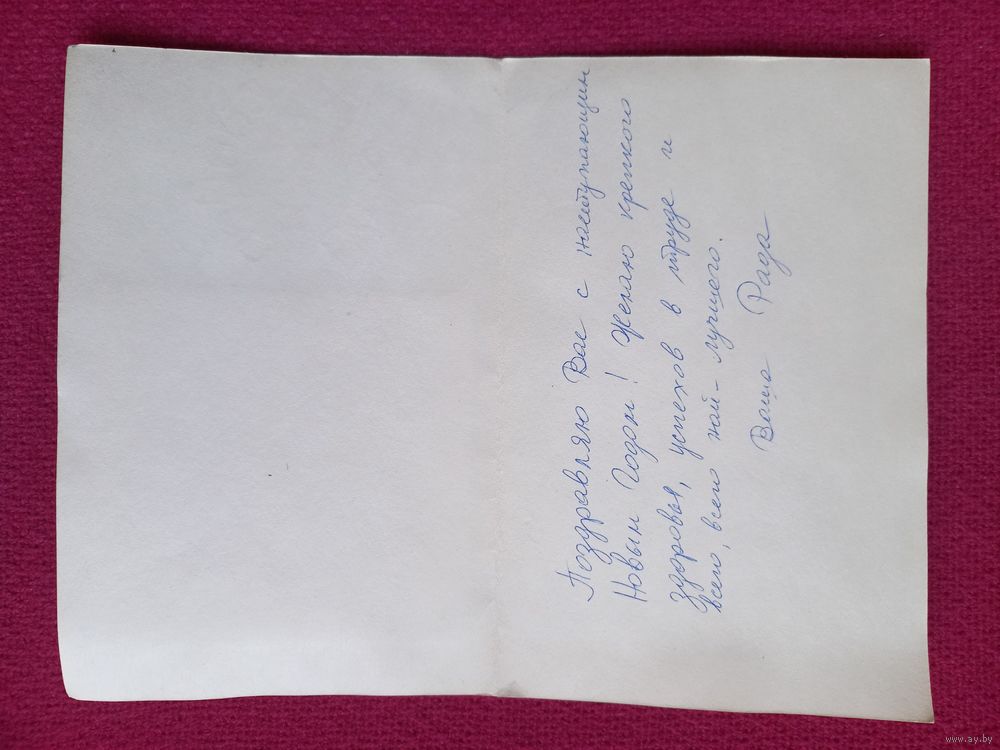 Поздравляю Вас с наступающим
Новым Годом! Желаю крепкого
здоровья, успехов в труде и
всего, всего най-лучшего.
Ваша Рада
www.ay.by